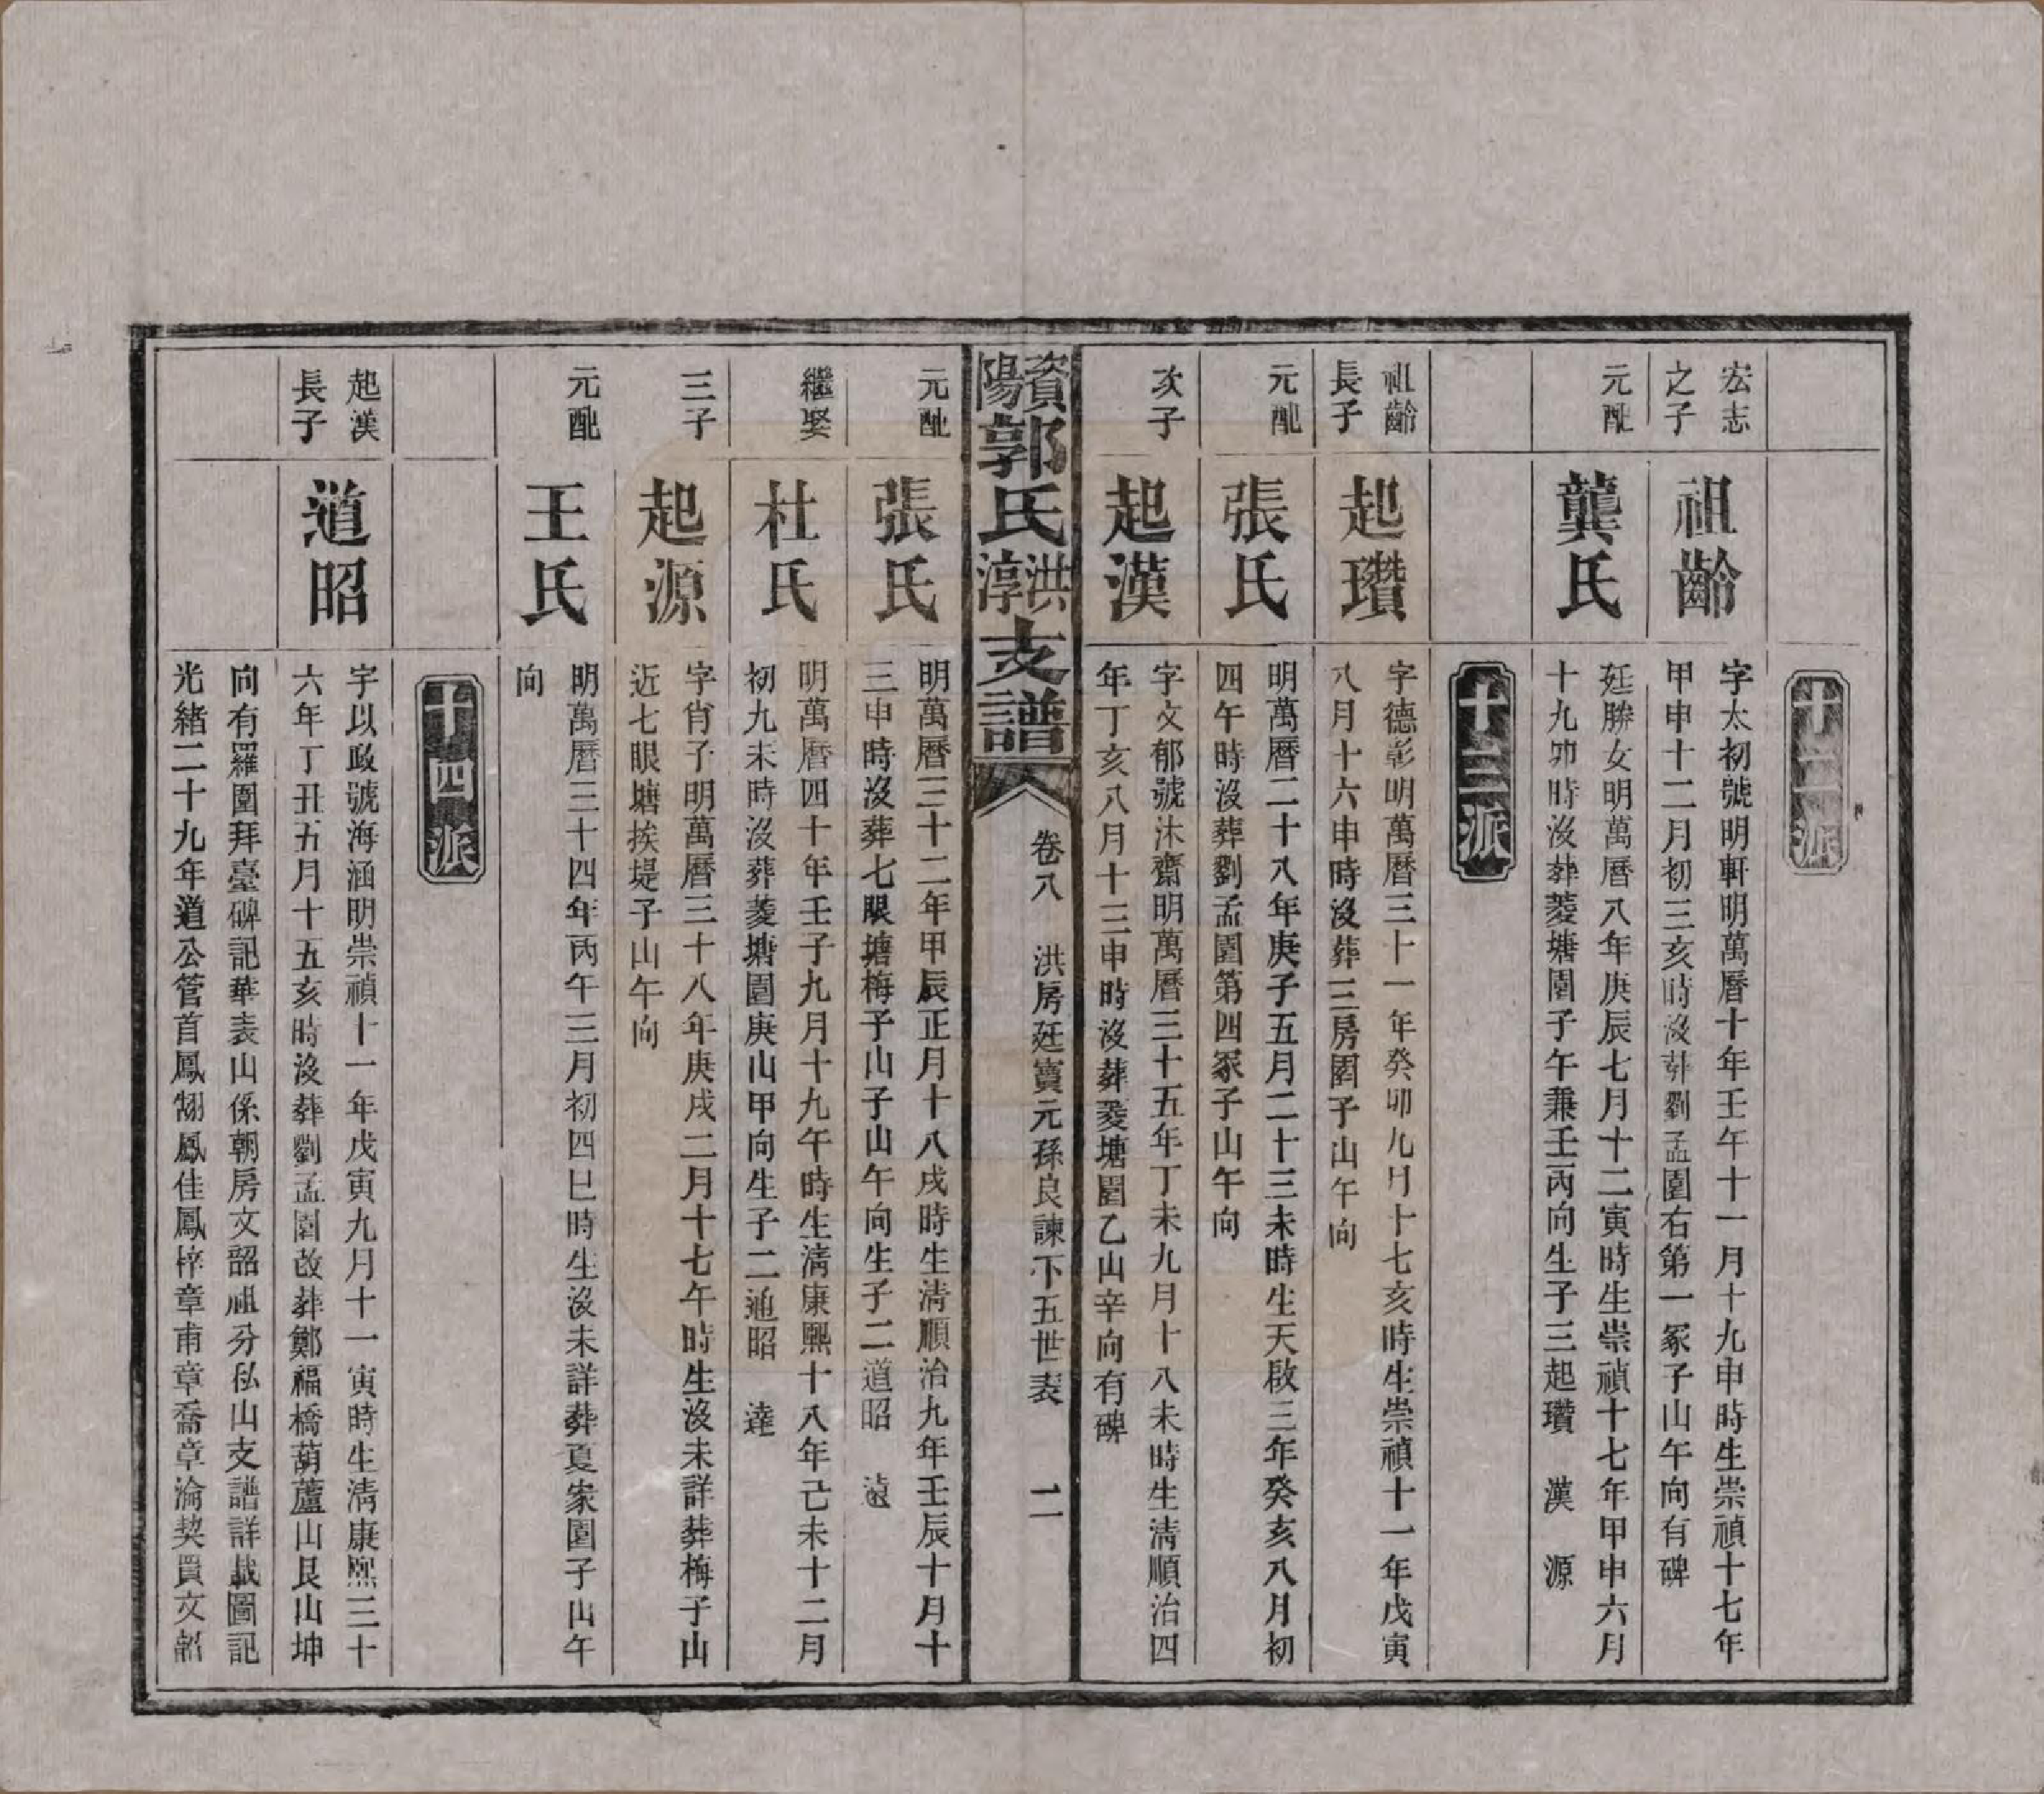 十二派
宏志
之子
祖齡
字太初號明軒明萬曆十年壬午十一月十九申時生崇禎十七年
甲申十二月初三亥時沒葬劉孟園右第一冢子山午向有碑
元配
龔氏
廷勝女明萬曆八年庚辰七月十二寅時生崇禎十七年甲申六月
十九卯時沒葬菱塘園子午兼壬丙向生子三起瓚 漢 源
十三派
祖齡
長子
起瓚
字德彰明萬曆三十一年癸卯九月十七亥時生崇禎十一年戊寅
八月十六申時沒葬三房園子山午向
元配
張氏
明萬曆二十八年庚子五月二十三未時生天啟三年癸亥八月初
四午時沒葬劉孟園第四冢子山午向
次子
起漢
字文郁號沐齋明萬曆三十五年丁未九月十八未時生清順治四
年丁亥八月十三申時沒葬菱塘園乙山辛向有碑
資陽郭氏洪淳支譜
卷八 洪房廷寶元孫良諫下五世表 二
元配
張氏
明萬曆三十二年甲辰正月十八戌時生清順治九年壬辰十月十
三申時沒葬七眼塘梅子山子山午向生子二道昭 遠
繼娶
杜氏
明萬曆四十年壬子九月十九午時生清康熙十八年己未十二月
初九未時沒葬菱塘園庚山甲向生子二道昭 達
三子
起源
字肖子明萬曆三十八年庚戌二月十七午時生沒未詳葬梅子山
近七眼塘挨堤子山午向
元配
王氏
明萬曆三十四年丙午三月初四巳時生沒未詳葬夏家園子山午
向
十四派
起漢
長子
道昭
字以政號海涵明崇禎十一年戊寅九月十一寅時生清康熙三十
六年丁丑五月十五亥時沒葬劉孟園改葬鄭福橋葫蘆山艮山坤
向有羅圍拜臺碑記華表山係朝房文韶祖分私山支譜詳載圖記
光緒二十九年道公管首鳳翙鳳佳鳳梓章甫章喬章淪契買文韶